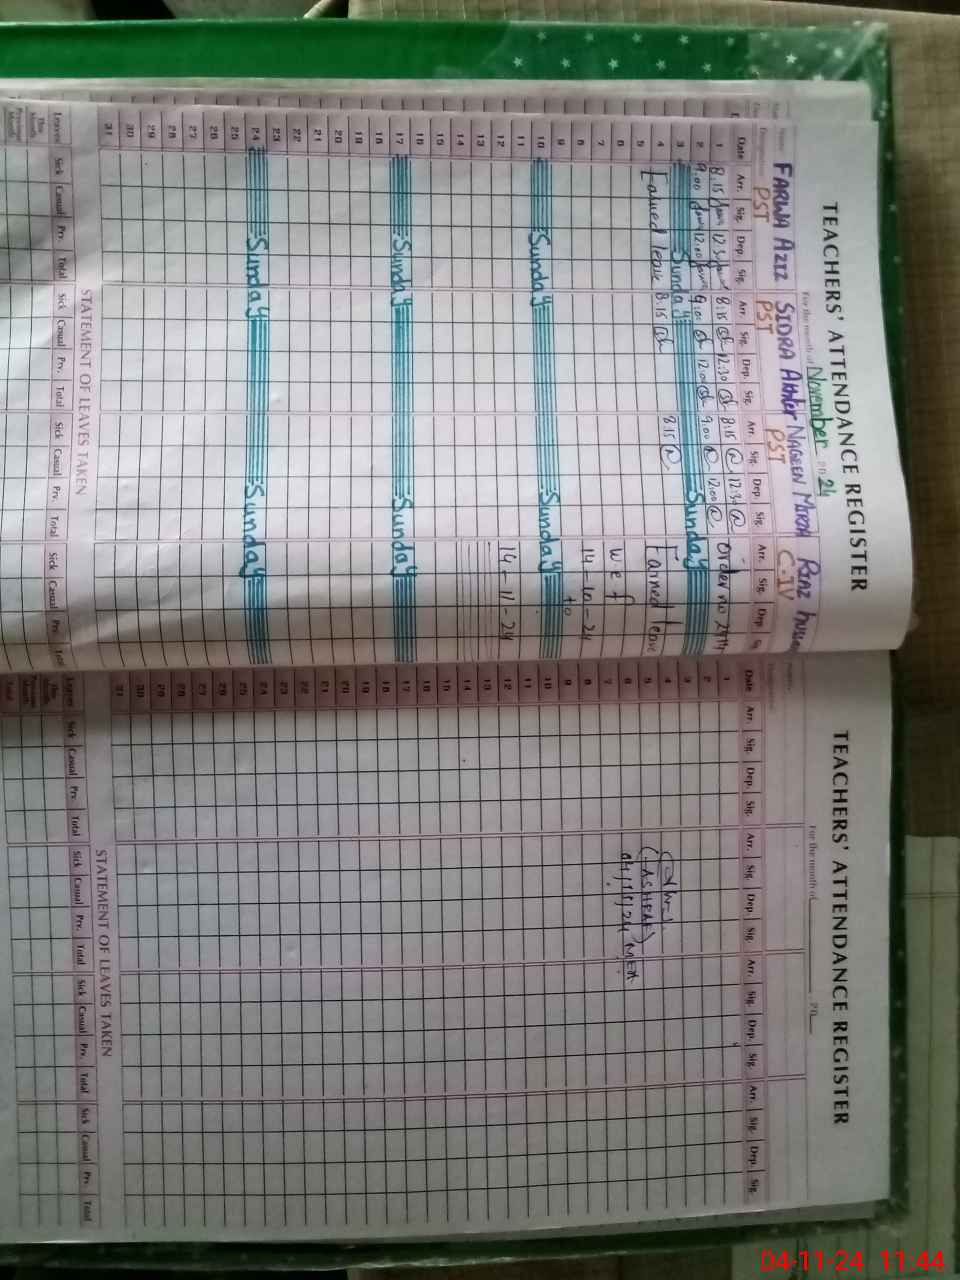 TEACHERS' ATTENDANCE REGISTER
For the month of November 2024
Name FARWA AZIZ SIDRA Akhter NAGEEN MIRDA RIAZ
Designation PST PST PST C.IV
Date Arr. Sig. Dep. Sig. Arr. Sig. Dep. Sig. Arr. Sig. Dep. Sig. Arr. Sig. Dep.
1 8:15 12:30 8:15 12:30 8:15 12:30 order no 2974
2 9:00 12:00 9:00 12:00 9:00 12:00
3 Sunday Sunday
4 Earned leave 8:15 8:15 Earned leave
5
6 w e f
7
8 14-10-24
9 to
10 Sunday Sunday
11
12 14-11-24
13
14
15
16
17 Sunday Sunday
18
19
20
21
22
23
24 Sunday Sunday
25
26
27
28
29
30
31
STATEMENT OF LEAVES TAKEN
Leaves Sick Casual Prv. Total Sick Casual Prv. Total Sick Casual Prv. Total Sick Casual Prv.
This Month
Previous Month
TEACHERS' ATTENDANCE REGISTER
For the month of 20
Date Arr. Sig. Dep. Sig. Arr. Sig. Dep. Sig. Arr. Sig. Dep. Sig. Arr. Sig. Dep. Sig.
1
2
3
4
5 (ASHRAF)
6 04/11/24 MEA
7
8
9
10
11
12
13
14
15
16
17
18
19
20
21
22
23
24
25
26
27
28
29
30
31
STATEMENT OF LEAVES TAKEN
Leaves Sick Casual Prv. Total Sick Casual Prv. Total Sick Casual Prv. Total Sick Casual Prv. Total
This Month
Previous Month
Total
04-11-24 11:44